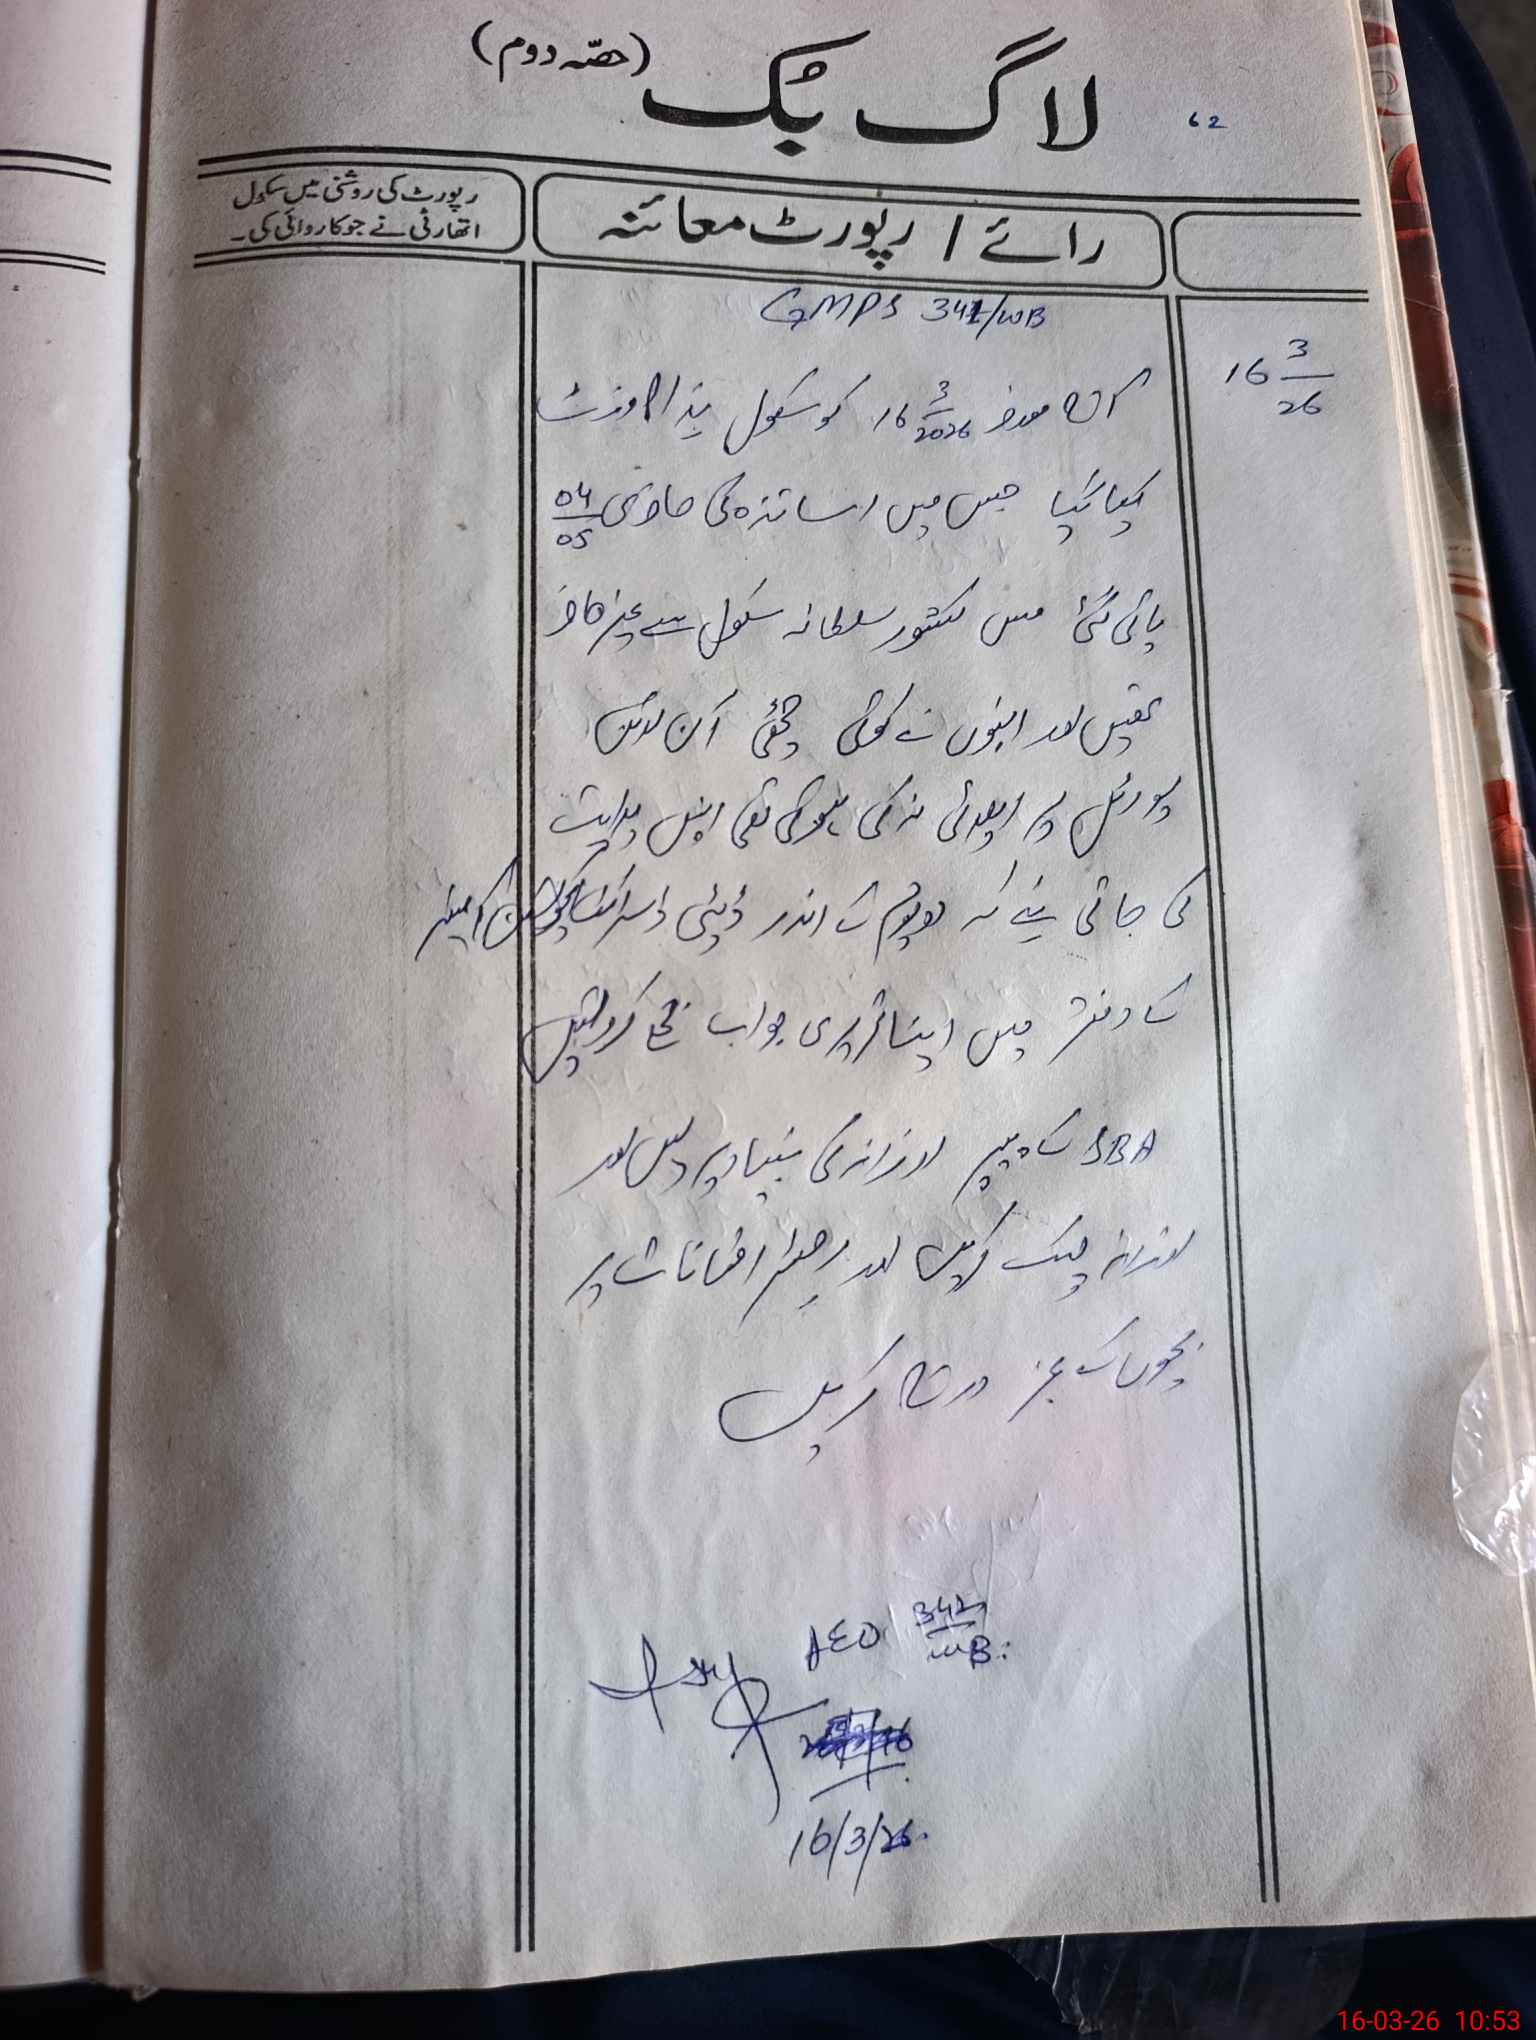 لاگ بک (حصّہ دوم)
62
رائے / رپورٹ معائنہ
رپورٹ کی روشنی میں سکول
اتھارٹی نے جو کاروائی کی۔
GMPS 341/WB
16 3/26
آج مورخہ 16 3/2026 کو سکول ہذا کا وزٹ
کیا گیا جس میں اساتذہ کی حاضری 04/05
پائی گئی مس کشور سلطانہ سکول سے غیر حاضر
تھیں اور انہوں نے کوئی چھٹی آن لائن
پورٹل پر اپلائی نہ کی ہوئی تھی انہیں ہدایت
کی جاتی ہے کہ یوم کے اندر ڈپٹی ڈسٹرکٹ ایجوکیشن آفیسر
کے دفتر میں اپنا تحریری جواب جمع کروائیں
SBA کے پیپر روزانہ کی بنیاد پر لیں اور
روزانہ چیک کریں اور رجسٹر امتحانات پر
بچوں کے نمبر درج کریں
AEO 341/WB
16/3/26
16-03-26 10:53